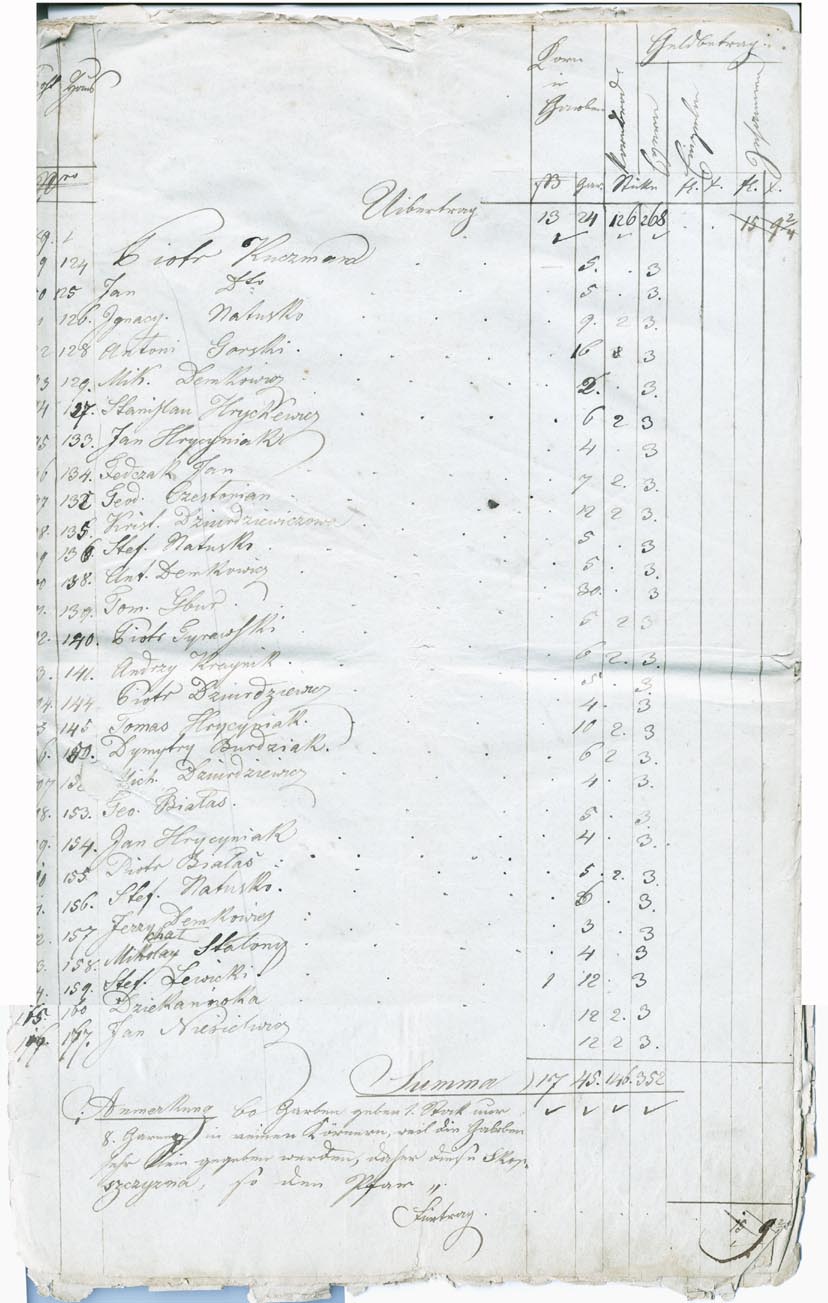 Korn in Garben Geldbetrag
Haus
Nro Gar. Stüke fl. x. fl. x.
Uibertrag 13 24 126 268 15 9 2/4
124 Piotr Kuczma 5. 3
125 Jan Dto 5 3.
126. Ignacy Natusko 9. 2 3.
128 Antoni Gorski. 16 3
129. Mik. Demkowicz 3.
127. Stanislau Hryckewicz 6 2 3
133. Jan Hrycyniak 4 3
134. Fedczak Jan 7 2. 3.
Geod. Czestonian 12 2 3.
135. Krist. Dziurdziewiczowa 5 3
136 Stef. Natusko. 5. 3.
138. Ant. Demkowicz 30. 3
139. Tom. Gbur 6 2 3
140. Piotr Gyrawski 6 2. 3.
141. Andrzy Kraynik. 5. 3.
144. Piotr Dziurdziewicz 4. 3
145. Tomas Hrycyniak. 10 2. 3
150. Dymytry Burdziak. 6 2 3.
Mich. Dziurdziewicz 4. 3.
153. Teo. Białas. 5. 3.
154. Jan Hrycyniak 4 3.
155. Piotr Białas 5. 2. 3.
156. Stef. Natusko. 6 3.
157 Jerzy Demkowicz 3 3
158. Mikołay Stalony 4 3
159. Stef. Lewicki. 1 12. 3
160 Dziekanwka 12 2. 3
167. Jan Niesielwicz 12 2 3.
Summa 17 45. 146. 352
Anmerkung 60 Garben geben 1. Stok nur
8. Garniz in reinen Körnern, weil die Garben
sehr klein gegeben werden, daher diese Skop-
szczyzna, so den Pfar
Fürtrag 15 9